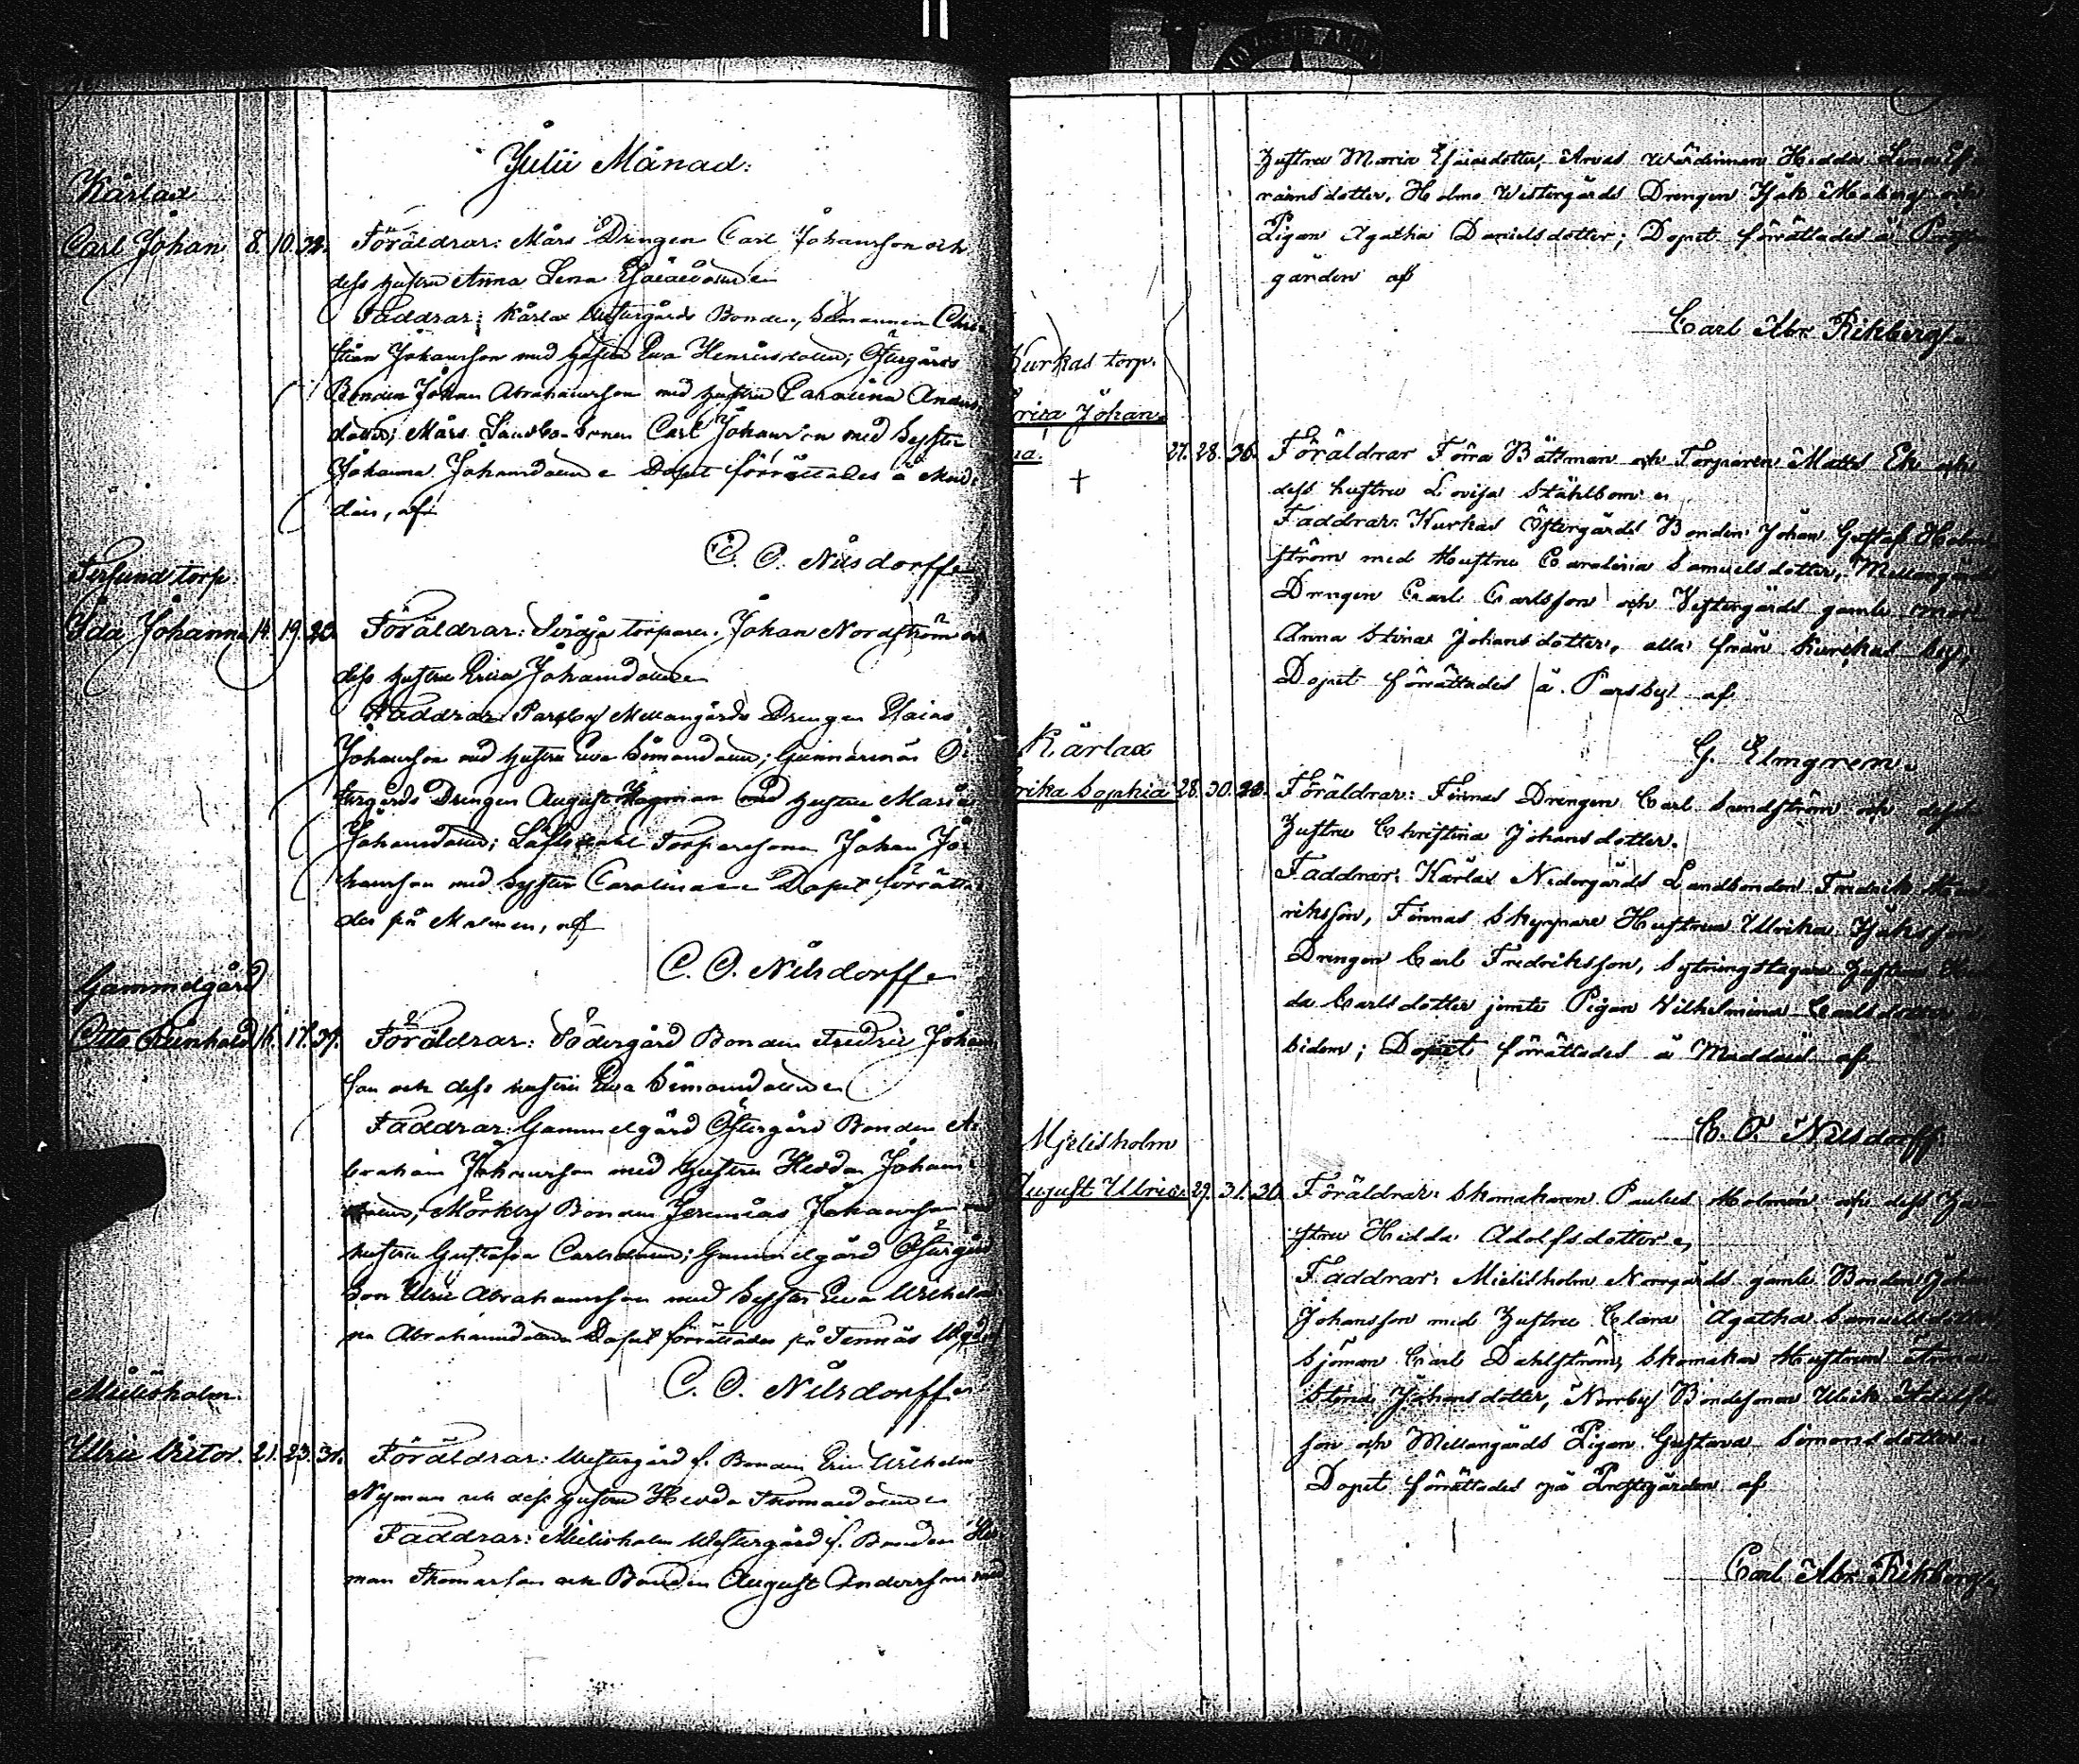 Julii Månad:
Kårlax
Carl Johan 8. 10. 32. Föräldrar: Mårs Drengen Carl Johansson och
dess hustru Anna Lena Esaiædotter
Faddrar: Kårlax Westergårds Bonde, Chri-
stian Johansson med hustru Ewa Henricsdotter; Östergårds
Bonden Johan Abrahamsson med hustru Carolina Anders-
dotter; Mårs Landbo-sonen Carl Johansson med Syster
Johanna Johansdotter Dopet förrättades å Med-
dais, af
C. O. Nilsdorff
torp.
Ida Johanna 14. 19. 20. Föräldrar: torparen Johan Nordström och
dess hustru Erica Johansdotter
Faddrar: Parsby Mellangårds Drengen Esaias
Johansson med hustru Ewa Simonsdotter; Gunnarsnäs Ö-
stergårds Drengen August Hagman med hustru Maria
Johansdotter; Torparesonen Johan Jo-
hansson med Syster Carolina Dopet förrätta-
des på Malmen, af
C. O. Nilsdorff
Gammelgård
Otto Reinhold 16. 17. 37. Föräldrar: Södergård Bonden Fredric Johans-
son och dess hustru Ewa Simonsdotter
Faddrar: Gammelgård Östergård Bonden A-
braham Johansson med hustru Hedda Johans-
dotter, Mörkby Bonden Jeremias Johansson med
hustru Gustafva Carlsdotter; Gammelgård Östergård
Son Ulric Abrahamsson med Syster Ewa Wilhelmi-
na Abrahamsdotter Dopet förrättades på Tennäs
C. O. Nilsdorff
Mielisholm.
Ulric Victor. 21. 23. 31. Föräldrar: Westergård f. Bonden Eric Wilhelm
Nyman och dess hustru Hedda Thomasdotter
Faddrar: Mielisholm Westergård f. Bonden
man Thomasson och Bonden August Andersson med
Hustru Maria Esaiædotter, Arvas Wärdinnan Hedda Lena
dotter, Holmo Westergårds Drengen Isak Moberg och
Pigan Agatha Danielsdotter; Dopet förrättades å
gården af
Carl Abr. Rikberg
Kurkas torp.
Erica Johan-
na. 27. 28. 36. Föräldrar Förra Båtsman och Torparen Matts Ek och
+ dess hustru Lovisa Ståhlbom
Faddrar: Kurkas Östergårds Bonden Johan Gustaf Holm-
ström med Hustru Carolina Samuelsdotter, Mellangårds
Drengen Carl Carlsson och Vestergårds gamla mor
Anna Stina Johansdotter, alla från Kurkas by;
Dopet förrättades å Parsby af
G. Elmgren.
Kårlax
Erika Sophia 28. 30. 20. Föräldrar: Finnas Drengen Carl Sundström och dess
Hustru Christina Johansdotter.
Faddrar: Kårlax Nedergårds Landbonden Fredrik Hen-
riksson, Finnas Skeppare Hustrun Ulrika
Drengen Carl Fredriksson, Sytningstagare Hustrun
da Carlsdotter jemte Pigan Vilhelmina Carlsdotter
bidem; Dopet förrättades å Meddais af
C. O. Nilsdorff
Mjelisholm
August Ulric 29. 31. 30. Föräldrar: Skomakaren Paulus Holmén och dess Hu-
stru Hedda Adolfsdotter
Faddrar: Mielisholm Norrgårds gamle Bonden Johan
Johansson med Hustru Clara Agatha Samuelsdotter
Sjöman Carl Dahlström, Skomakar Hustrun Anna
Stina Johansdotter, Norrby Bondesonen Ulrik Adolfs-
son och Mellangårds Pigan Gustava Simonsdotter
Dopet förrättades på Prestgården af
Carl Abr. Rikberg